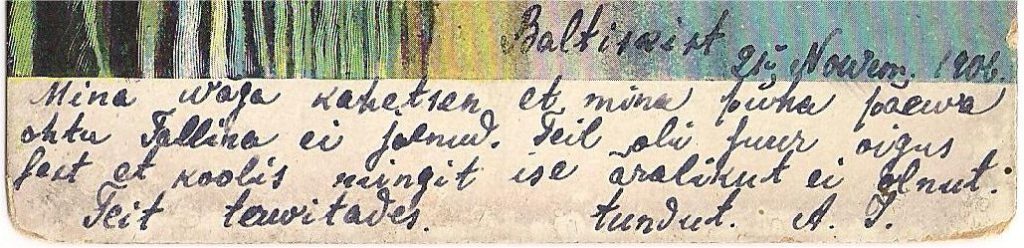 Baltiskist
21, Nowem, 1906.
Mina wäga kahetsen et mina püha päewa
ohtu Tallina ei jõenud. Teil oli suur oigus
sest et koolis mingit ise äralikut ei olnut.
Teit terwitades. tundut. A. T.